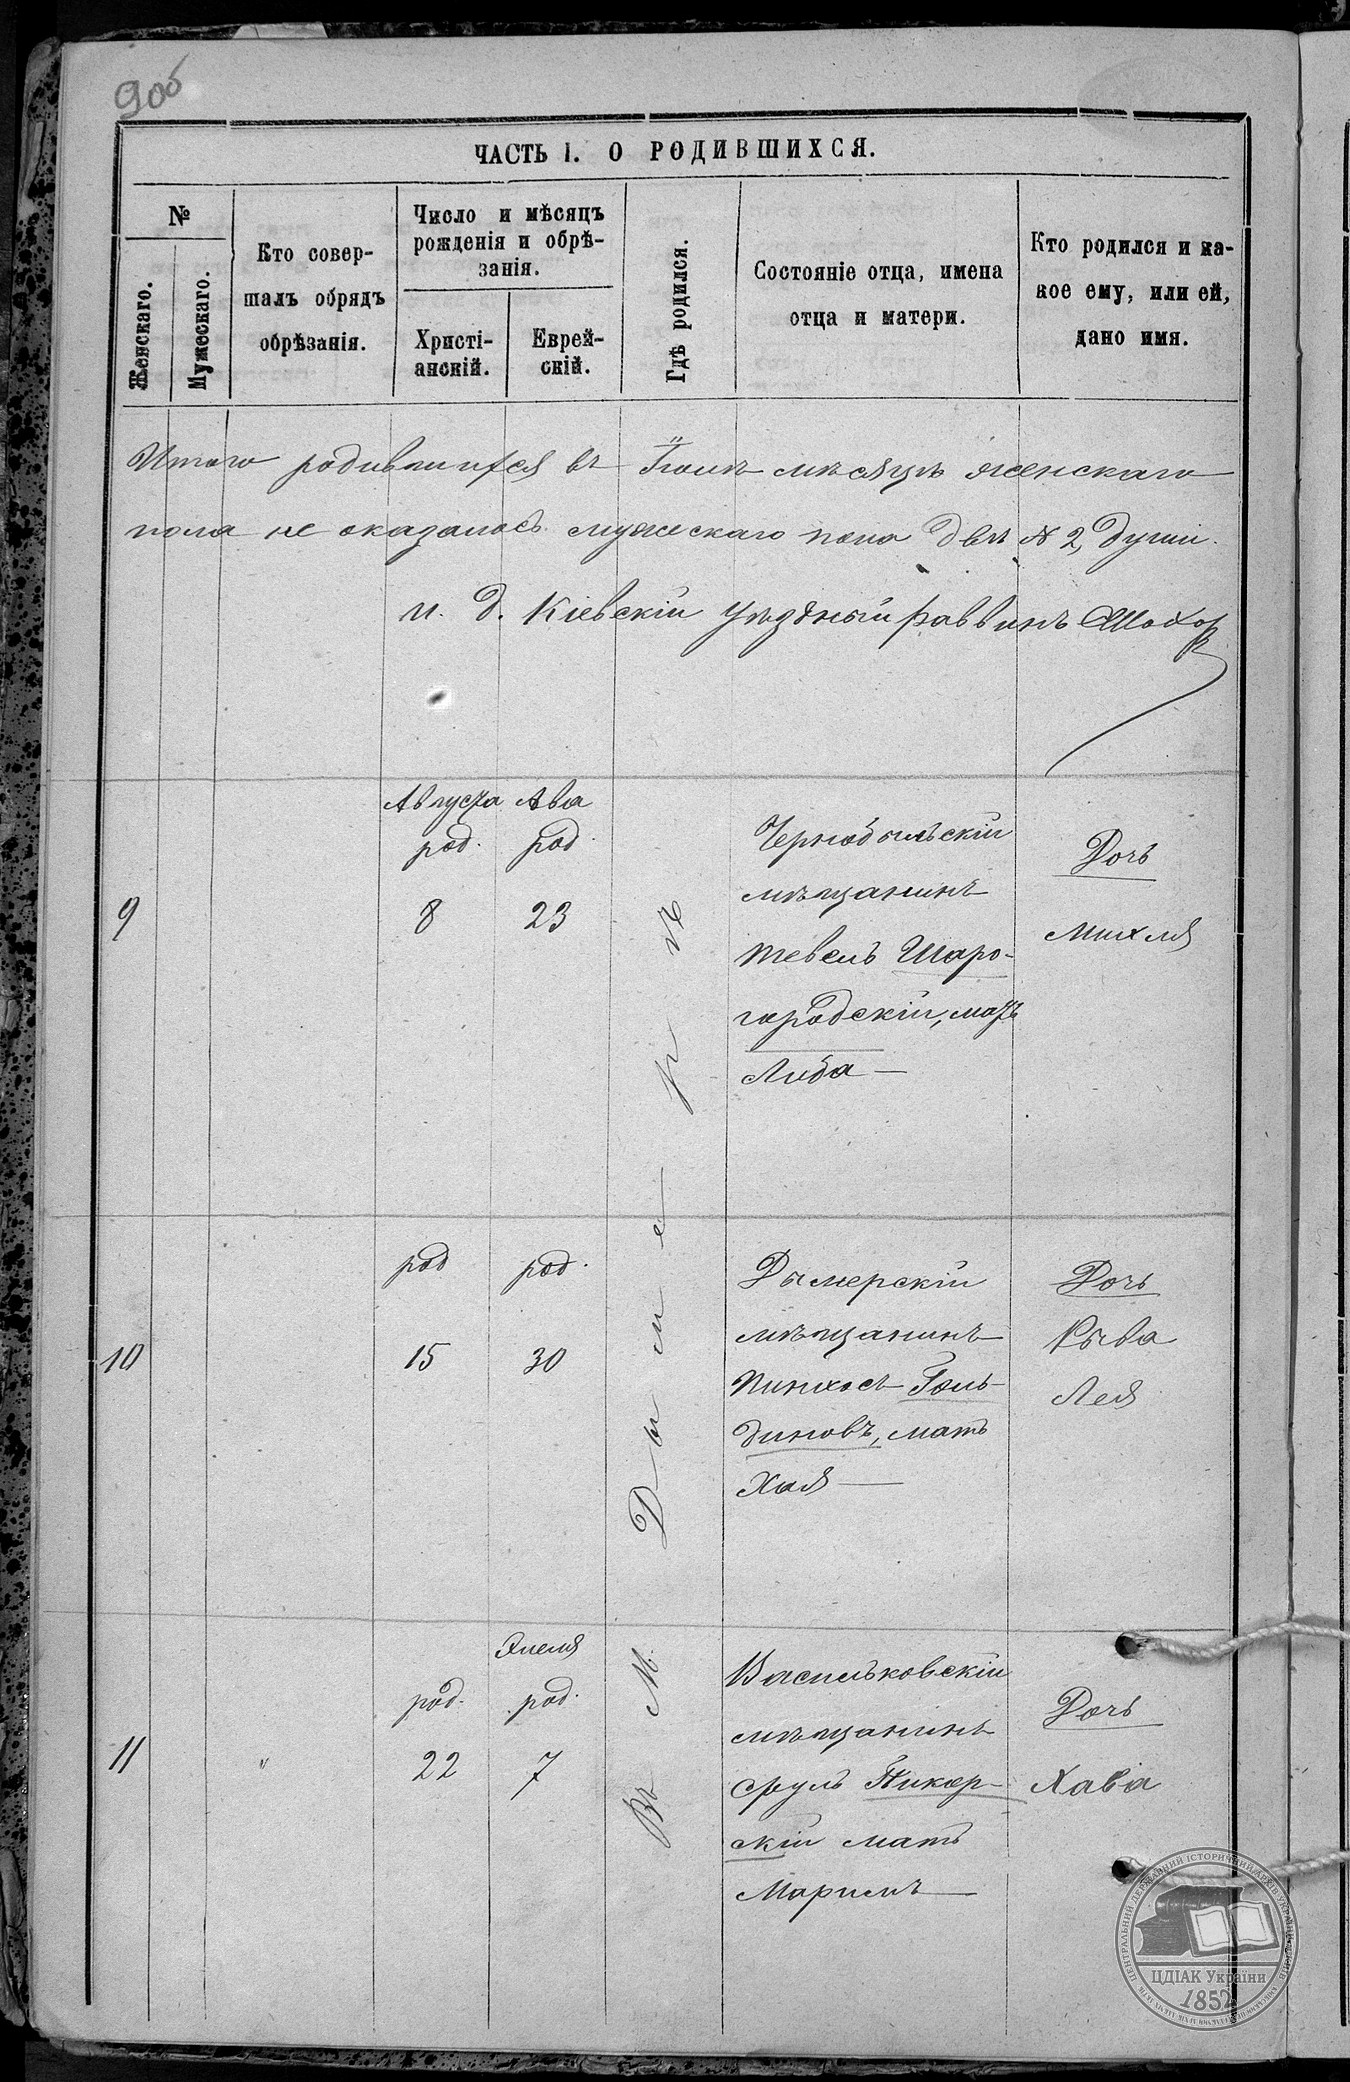 90б
ЧАСТЬ I. О РОДИВШИХСЯ.
№
Женскаго.
Мужескаго.
Кто совер-
шалъ обрядъ
обрѣзанія.
Число и мѣсяцъ
рожденія и обрѣ-
занія.
Христі-
анскій.
Еврей-
скій.
Гдѣ родился.
Состояніе отца, имена
отца и матери.
Кто родился и ка-
кое ему, или ей,
дано имя.
Итого родившихся въ Іюлѣ мѣсяцѣ женскаго
пола не оказалось мужескаго пола двѣ № 2, души.
И. д. Кіевскій уѣздный раввинъ
Въ М. Дымерѣ
9
Августа Ава
род. род.
8 23
Чернобыльскій
мѣщанинъ
Тевель Шаро-
городскій, мать
Либа —
Дочь
Михля
10
род род.
15 30
Дымерскій
мѣщанинъ
Пинхосъ Голь-
диновъ, мать
Хая —
Дочь
Рыва
Лея
11
"
Элеля
род. род.
22 7
Васильковскій
мѣщанинъ
Сруль Пикор-
скій мать
Маримъ —
Дочь
Хава
ЦДІАК України
1852